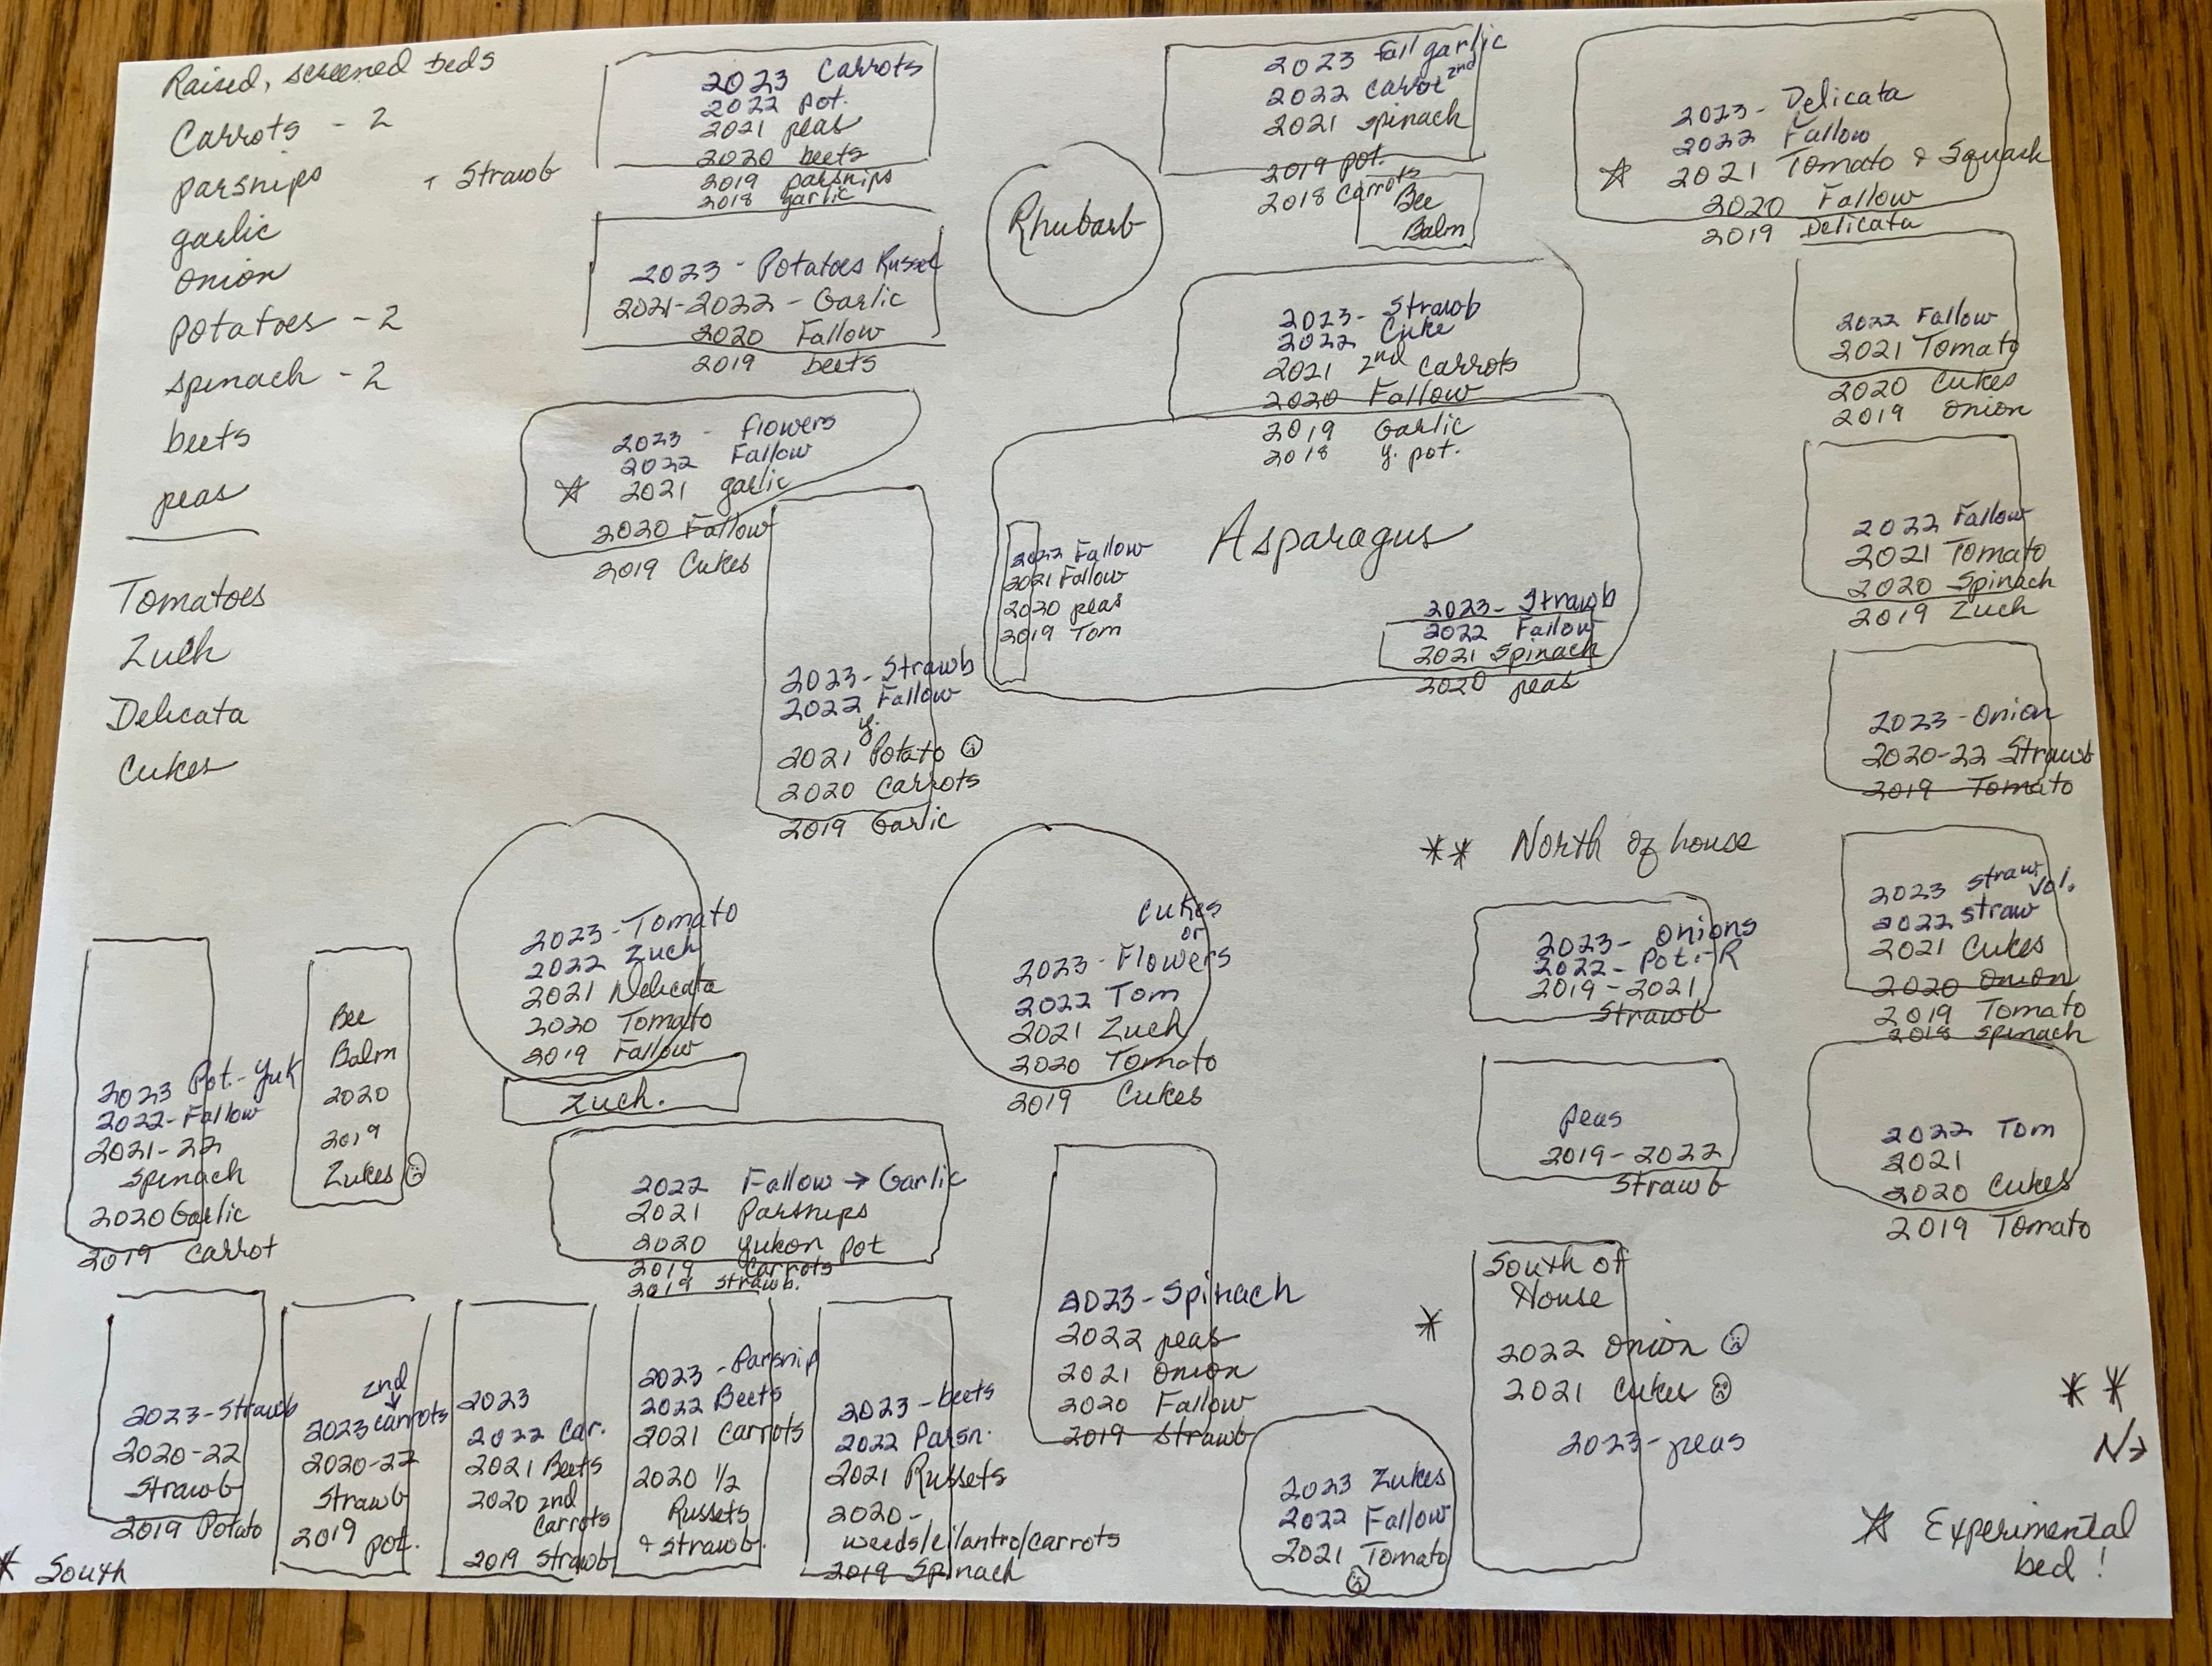 Raised, screened beds
Carrots - 2
parsnips + Strawb
garlic
onion
potatoes - 2
spinach - 2
beets
peas
Tomatoes
Zuch
Delicata
Cukes
2023 Carrots
2022 pot.
2021 peas
2020 beets
2019 parsnips
2018 garlic
2023 - Potatoes Russet
2021-2022 - Garlic
2020 Fallow
2019 beets
2023 - flowers
2022 Fallow
☆ 2021 garlic
2020 Fallow
2019 Cukes
2023 - Strawb
2022 Fallow
y.
2021 Potato ☹
2020 Carrots
2019 Garlic
Rhubarb
2023 fall garlic
2022 Carrot 2nd
2021 spinach
2019 pot.
2018 Carrots
Bee
Balm
2023 - Strawb
2022 Cuke
2021 2nd Carrots
2020 Fallow
2019 Garlic
2018 y. pot.
Asparagus
2022 Fallow
2021 Fallow
2020 peas
2019 Tom
2023 - Strawb
2022 Fallow
2021 Spinach
2020 peas
2023 - Delicata
2022 Fallow
☆ 2021 Tomato & Squash
2020 Fallow
2019 Delicata
2022 Fallow
2021 Tomato
2020 Cukes
2019 Onion
2022 Fallow
2021 Tomato
2020 Spinach
2019 Zuch
2023 - Onion
2020-22 Strawb
2019 Tomato
2023 straw vol.
2022 straw
2021 Cukes
2020 Onion
2019 Tomato
2018 Spinach
2022 Tom
2021
2020 Cukes
2019 Tomato
** North of house
2023 - Onions
2022 - Pot. - R
2019 - 2021
Strawb
peas
2019 - 2022
Strawb
* South of
House
2022 Onion ☹
2021 Cukes ☹
2023 - peas
2023 - Tomato
2022 Zuch
2021 Delicata
2020 Tomato
2019 Fallow
Zuch.
Cukes
or
2023 - Flowers
2022 Tom
2021 Zuch
2020 Tomato
2019 Cukes
2023 Pot. - Yuk
2022 - Fallow
2021-22
Spinach
2020 Garlic
2019 Carrot
Bee
Balm
2020
2019
Zukes ☹
2022 Fallow → Garlic
2021 Parsnips
2020 yukon pot
2019 Carrots
2019 Strawb.
2023 - Spinach
2022 peas
2021 Onion
2020 Fallow
2019 Strawb
2023 - Strawb
2020-22
Strawb
2019 Potato
2nd
↓
2023 carrots
2020-22
Strawb
2019 pot.
2023
2022 Car.
2021 Beets
2020 2nd
Carrots
2019 Strawb
2023 - Parsnip
2022 Beets
2021 Carrots
2020 1/2
Russets
& Strawb.
2023 - beets
2022 Parsn.
2021 Russets
2020 -
weeds/cilantro/carrots
2019 Spinach
2023 Zukes
2022 Fallow
2021 Tomato
☹
* South
**
N→
☆ Experimental
bed!